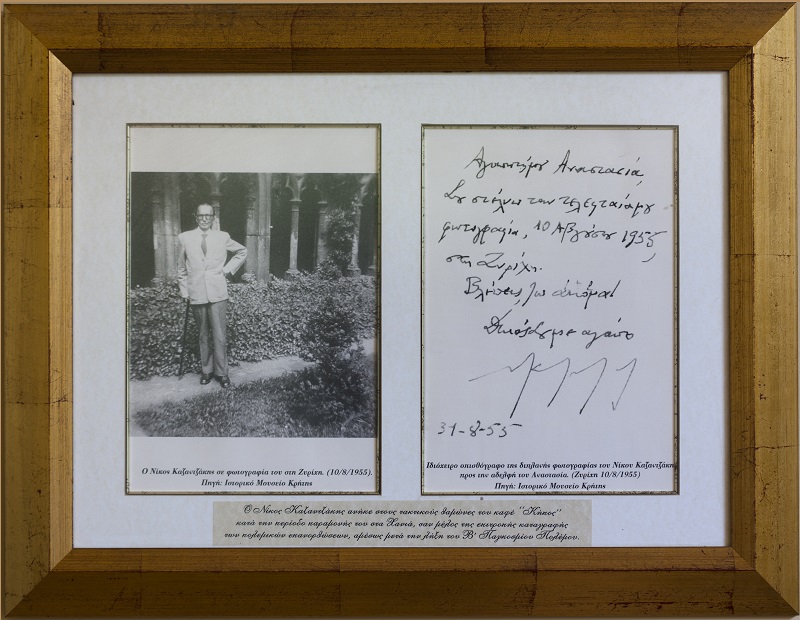 Ο Νίκος Καζαντζάκης σε φωτογραφία του στη Ζυρίχη. (10/8/1955).
Πηγή: Ιστορικό Μουσείο Κρήτης
Αγαπητήμου Αναστασία,
Σου στέλνω την τελευταίαμου
φωτογραφία, 10 Αυγούστου 1955,
στη Ζυρίχη.
Βλέπεις, ζω ακόμα!
αγάπη
31-8-55
Ιδιόχειρο οπισθόγραφο της διπλανής φωτογραφίας του Νίκου Καζαντζάκη
προς την αδελφή του Αναστασία. (Ζυρίχη 10/8/1955)
Πηγή: Ιστορικό Μουσείο Κρήτης
Ο Νίκος Καζαντζάκης ανήκε στους τακτικούς θαμώνες του καφέ "Κήπος"
κατά την περίοδο παραμονής του στα Χανιά, σαν μέλος της επιτροπής καταγραφής
των πολεμικών επανορθώσεων, αμέσως μετά την λήξη του Β' Παγκοσμίου Πολέμου.